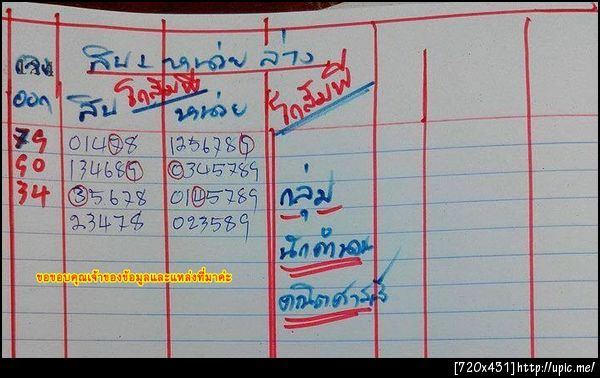 เลข สิบ - หน่วย ล่าง
ออก สิบ โกสัมพี หน่วย โกสัมพี
79 01478 1256789
90 134689 0345789
34 35678 0145789
23478 023589
กลุ่ม
นักคำนวณ
คณิตศาสตร์
ขอขอบคุณเจ้าของข้อมูลและแหล่งที่มาค่ะ
[720x451]http://upic.me/